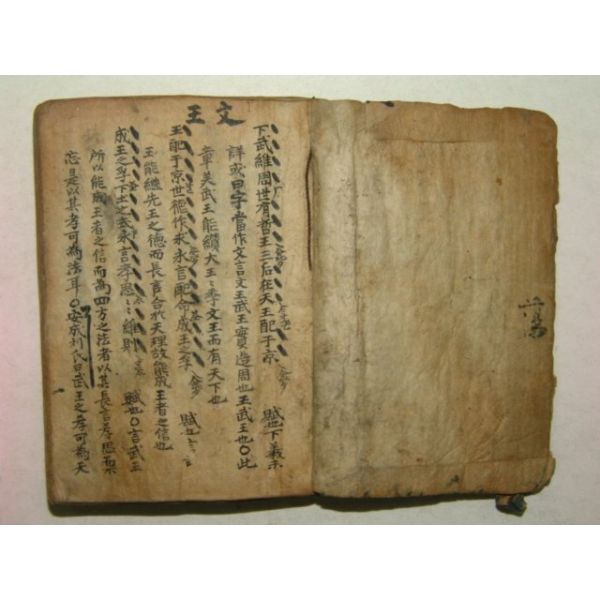 文王
下武維周世有哲王三后在天王配于京 賦也下義未
詳或曰字當作文言文王武王實造周也王武王也○此
章美武王能纘大王〻季文王而有天下也
王配于京世德作求永言配命成王之孚 賦也
王能継先王之德而長言合於天理故能成王者之信也
成王之孚下土之式永言孝思〻〻維則 賦也○言武王
所以能成王者之信而為四方之法者以其長言孝思
忘是以其孝可為法耳○安成刘氏曰武王之孝可為天